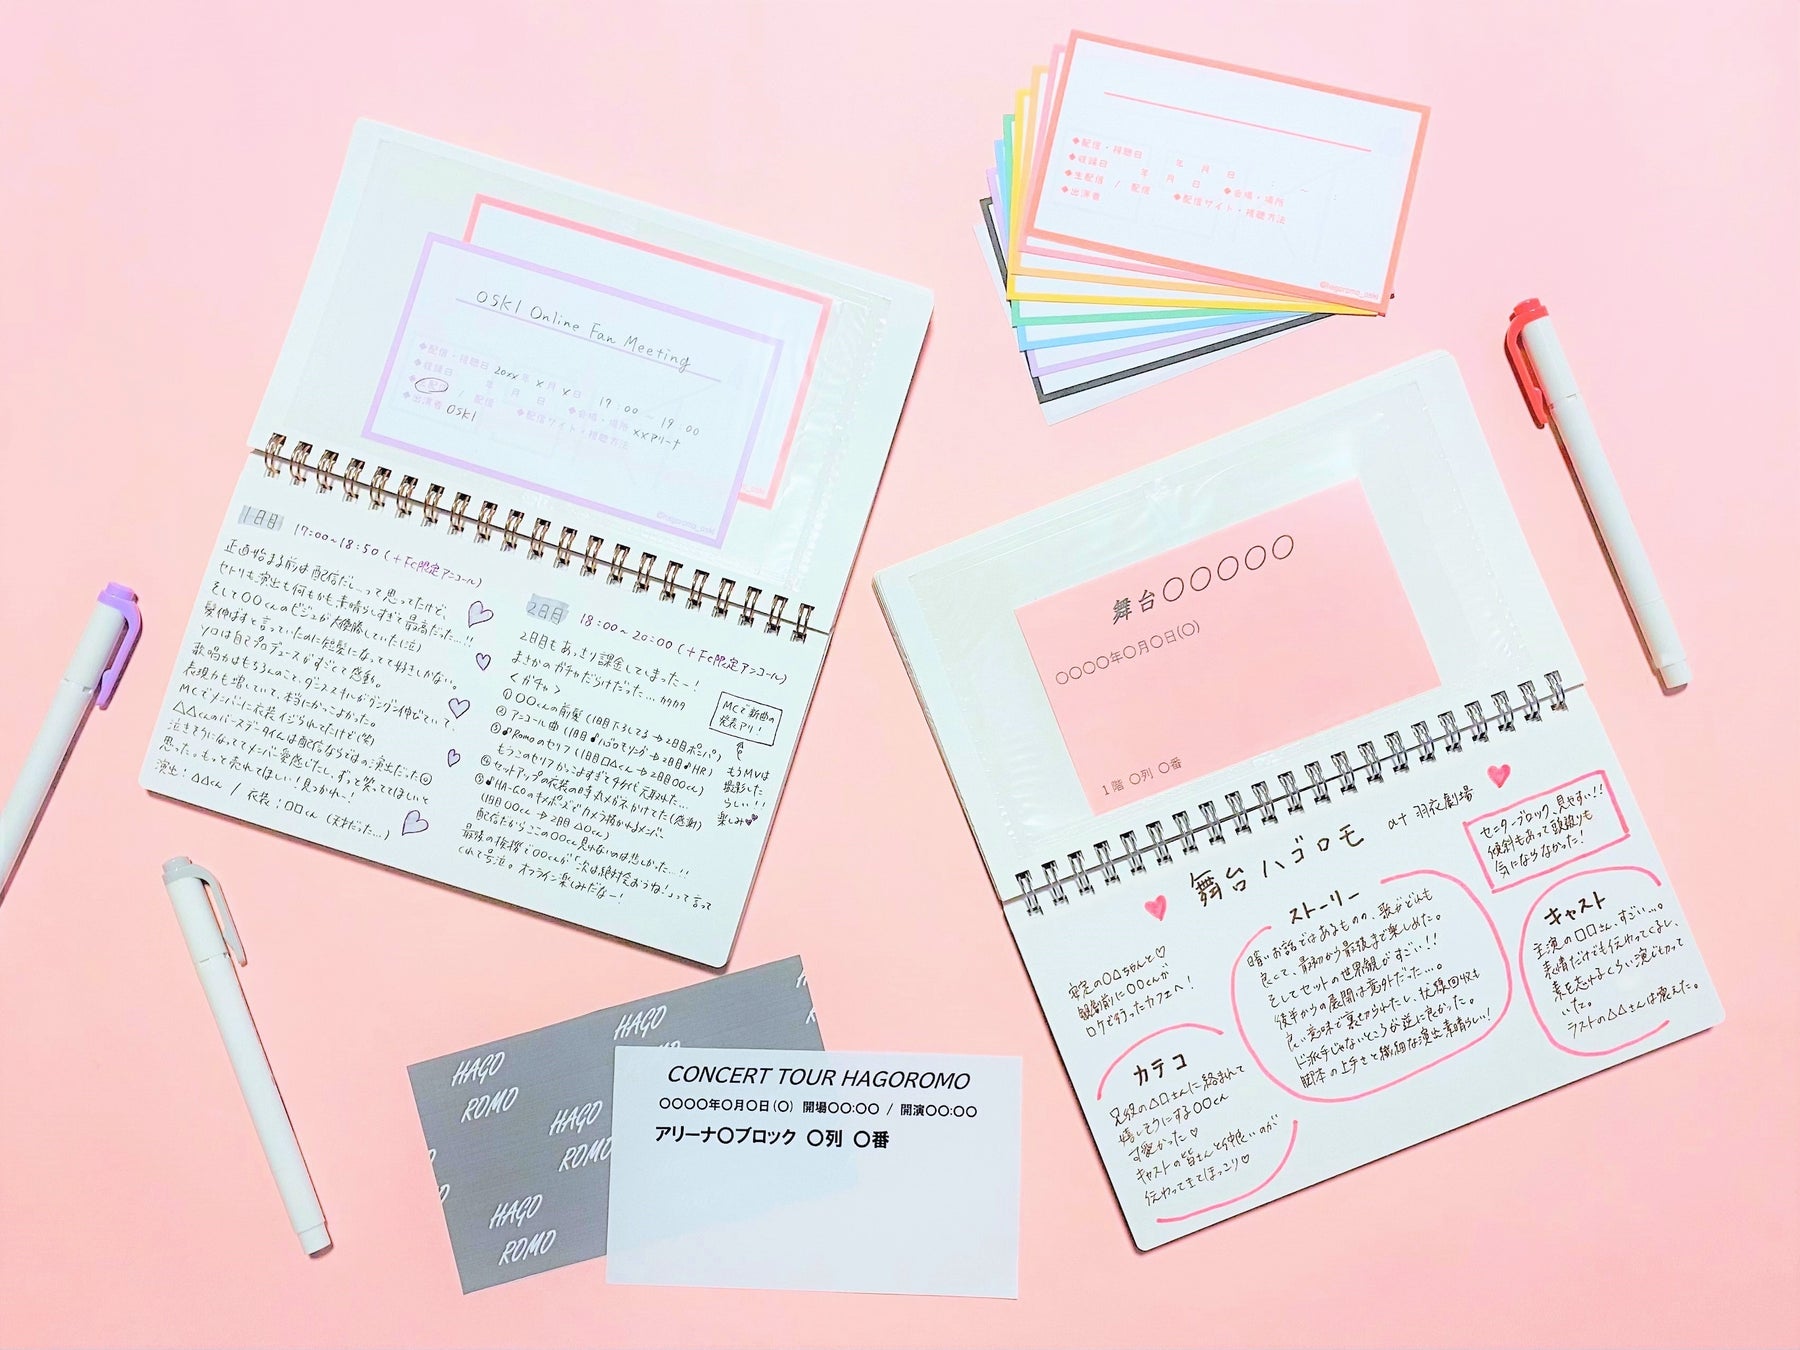 OSKI Online Fan Meeting
◆配信・視聴日 20XX年 X月 X日 17:00 ~ 19:00
◆収録日 年 月 日 ◆会場・場所 XXアリーナ
◆生配信 / 配信 ◆配信サイト・視聴方法
◆出演者 OSKI
@hagoromo_oski
1日目 17:00~18:50 (+FC限定アンコール)
正直始まる前は配信だし…って思ってたけど、
セトリも演出も何もかも素晴らしすぎて最高だった…!!
そして〇〇くんのビジュが大優勝していた(泣)
髪伸ばすと言っていたのに短髪になってて好きしかない。
ソロは自己プロデュースがすごくて感動。
歌唱力はもちろんのこと、ダンススキルがグングン伸びていて、
表現力も増していて、本当にかっこよかった。
MCでメンバーに衣装イジられてたけど(笑)
△△くんのバースデータイムは配信ならではの演出だった
泣きそうになっててメンバー愛感じたし、ずっと笑っててほしいと
思った。もっと売れてほしい!見つかれー!
演出:△△くん / 衣装:□□くん (天才だった…)
2日目 18:00~20:00 (+FC限定アンコール)
2日目もあっさり課金してしまったー!
まさかのガチャだらけだった…カタカタ
<ガチャ>
①〇〇くんの前髪 (1日目下ろしてる→2日目ポンパ)
②アンコール曲 (1日目♪ハゴロモソング→2日目♪HR)
③♪Romoのセリフ (1日目□△くん→2日目〇〇くん)
もうこのセリフかっこよすぎてタダで元取れた…
④セットアップの衣装の時丸メガネかけてた(感動)
⑤♪HA-GOのキメポーズでカメラ抜かれるメンバー
(1日目〇〇くん→2日目△〇くん)
配信だからここの〇〇くん見れないのは悲しかった…!!
最後の挨拶で〇〇くんが「次は絶対会おうね!」って言って
くれて号泣。オフライン楽しみだなー!
MCで新曲の
発表アリ!
もうMVは
撮影した
らしい!!
楽しみ
◆配信・視聴日 年 月 日 : ~ :
◆収録日 年 月 日 ◆会場・場所
◆生配信 / 配信 ◆配信サイト・視聴方法
◆出演者
@hagoromo_oski
舞台〇〇〇〇〇
〇〇〇〇年〇月〇日(〇)
1階 〇列 〇番
舞台 ハゴロモ at 羽衣劇場
センターブロック、見やすい!!
傾斜もあって頭被りも
気にならなかった!
安定の〇△ちゃんと♡
観劇前に〇〇くんが
ロケで行ったカフェへ!
ストーリー
暗いお話ではあるものの、歌がどれも
良くて、最初から最後まで楽しめた。
そしてセットの世界観がすごい!!
後半からの展開は意外だった…。
良い意味で裏切られたし、伏線回収も
ド派手じゃないところが逆に良かった。
脚本の上手さと繊細な演出素晴らしい!
キャスト
主演の〇□さん、すごい…。
表情だけでも伝わってくるし、
素を忘れるくらい演じ切って
いた。
ラストの△△さんは震えた。
カテコ
兄役の△□さんに絡まれて
嬉しそうにする〇〇くん
可愛かった♡
キャストの皆さんと仲良いのが
伝わってきてほっこり♡
HAGO
ROMO
HAGO
ROMO
HAGO
ROMO
CONCERT TOUR HAGOROMO
〇〇〇〇年〇月〇日(〇) 開場〇〇:〇〇 / 開演〇〇:〇〇
アリーナ〇ブロック 〇列 〇番